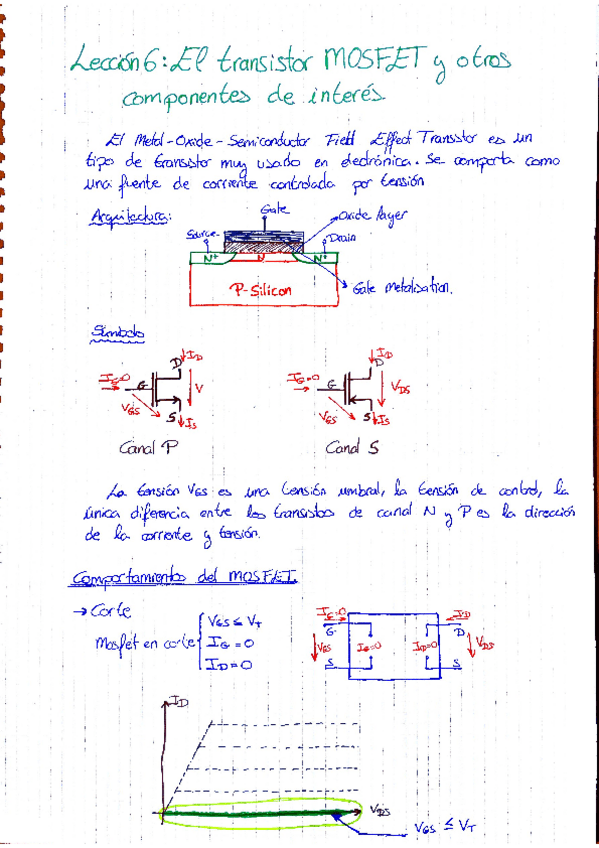 Lección 6: El transistor MOSFET y otros
componentes de interés
El Metal-Oxide-Semiconductor Field Effect Transistor es un
tipo de transistor muy usado en electrónica. Se comporta como
una fuente de corriente controlada por tensión
Arquitectura:
Gate
Oxide layer
Source
Drain
N+
N
N+
P-Silicon
Gate Metalisation.
Símbolo
ID
D
IG=0
G
V
VGS
S
IS
Canal P
ID
D
IG=0
G
VDS
VGS
S
IS
Canal S
La tensión VGS es una tensión umbral, la tensión de control, la
única diferencia entre los transistos de canal N y P es la dirección
de la corriente y tensión.
Comportamiento del MOSFET
→ Corte
Mosfet en corte
VGS ≤ VT
IG = 0
ID = 0
IG=0
ID
G
D
VGS
IG=0
ID=0
VDS
S
S
ID
VDS
VGS ≤ VT